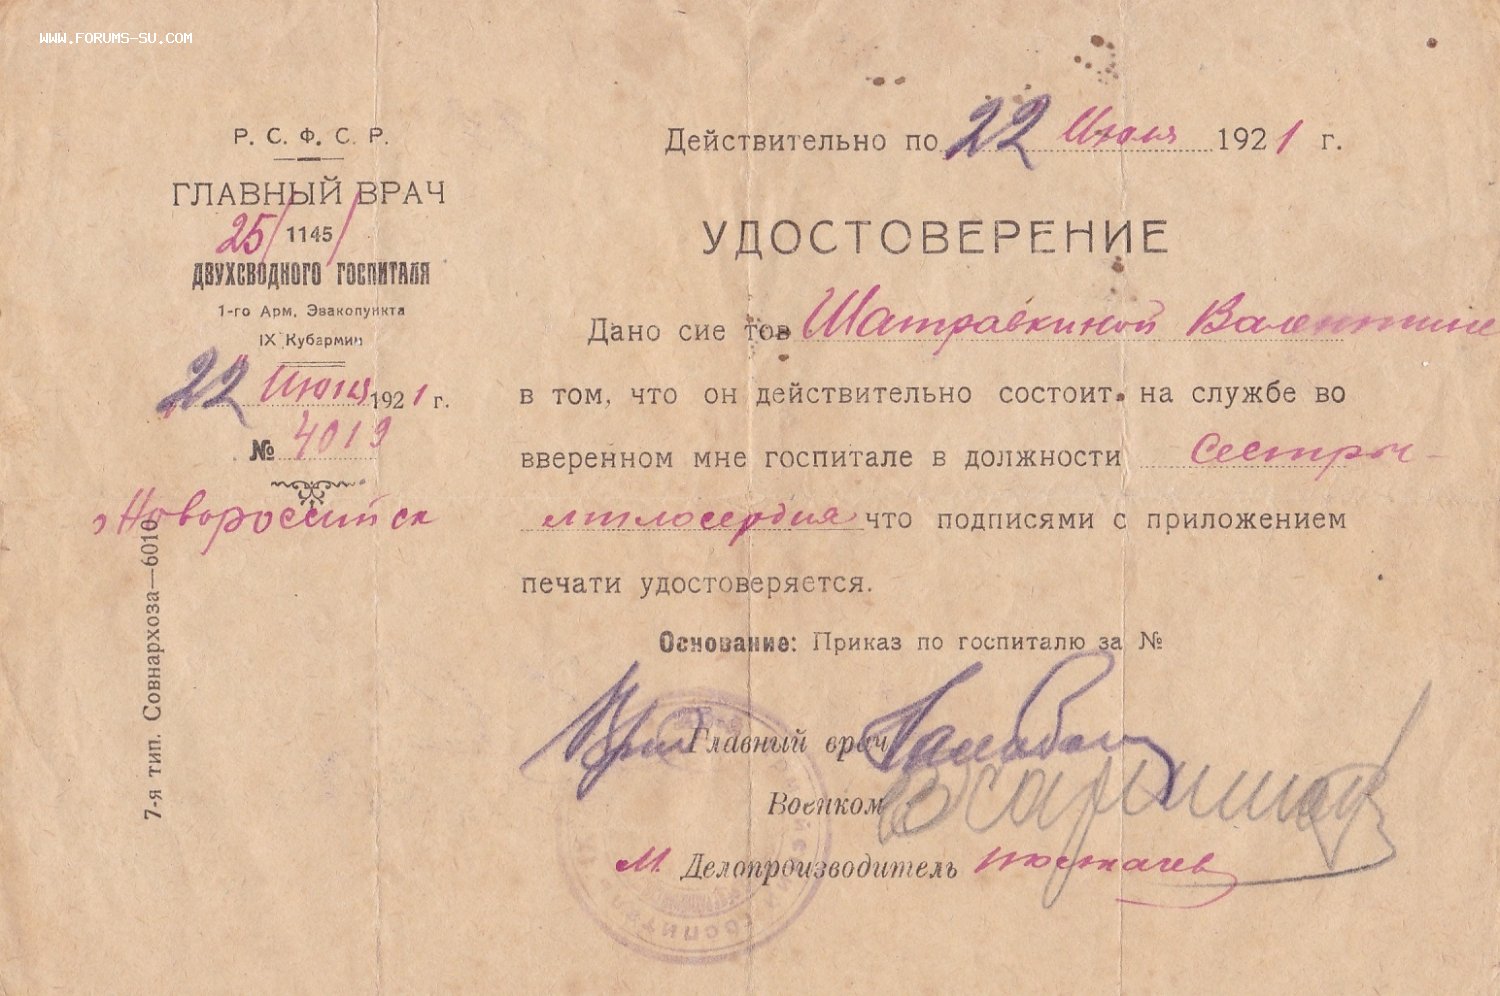 WWW.FORUMS-SU.COM
Р. С. Ф. С. Р.
ГЛАВНЫЙ ВРАЧ
25/1145/
ДВУХСВОДНОГО ГОСПИТАЛЯ
1-го Арм. Эвакопункта
IX Кубармии
22 Июня 1921 г.
№ 4019
г Новороссийск
7-я тип. Совнархоза—6010
Действительно по 22 Июля 1921 г.
УДОСТОВЕРЕНИЕ
Дано сие тов Шатравкиной Валентине
в том, что он действительно состоит на службе во
вверенном мне госпитале в должности Сестры
милосердия что подписями с приложением
печати удостоверяется.
Основание: Приказ по госпиталю за №
Главный врач
Военком
М. Делопроизводитель